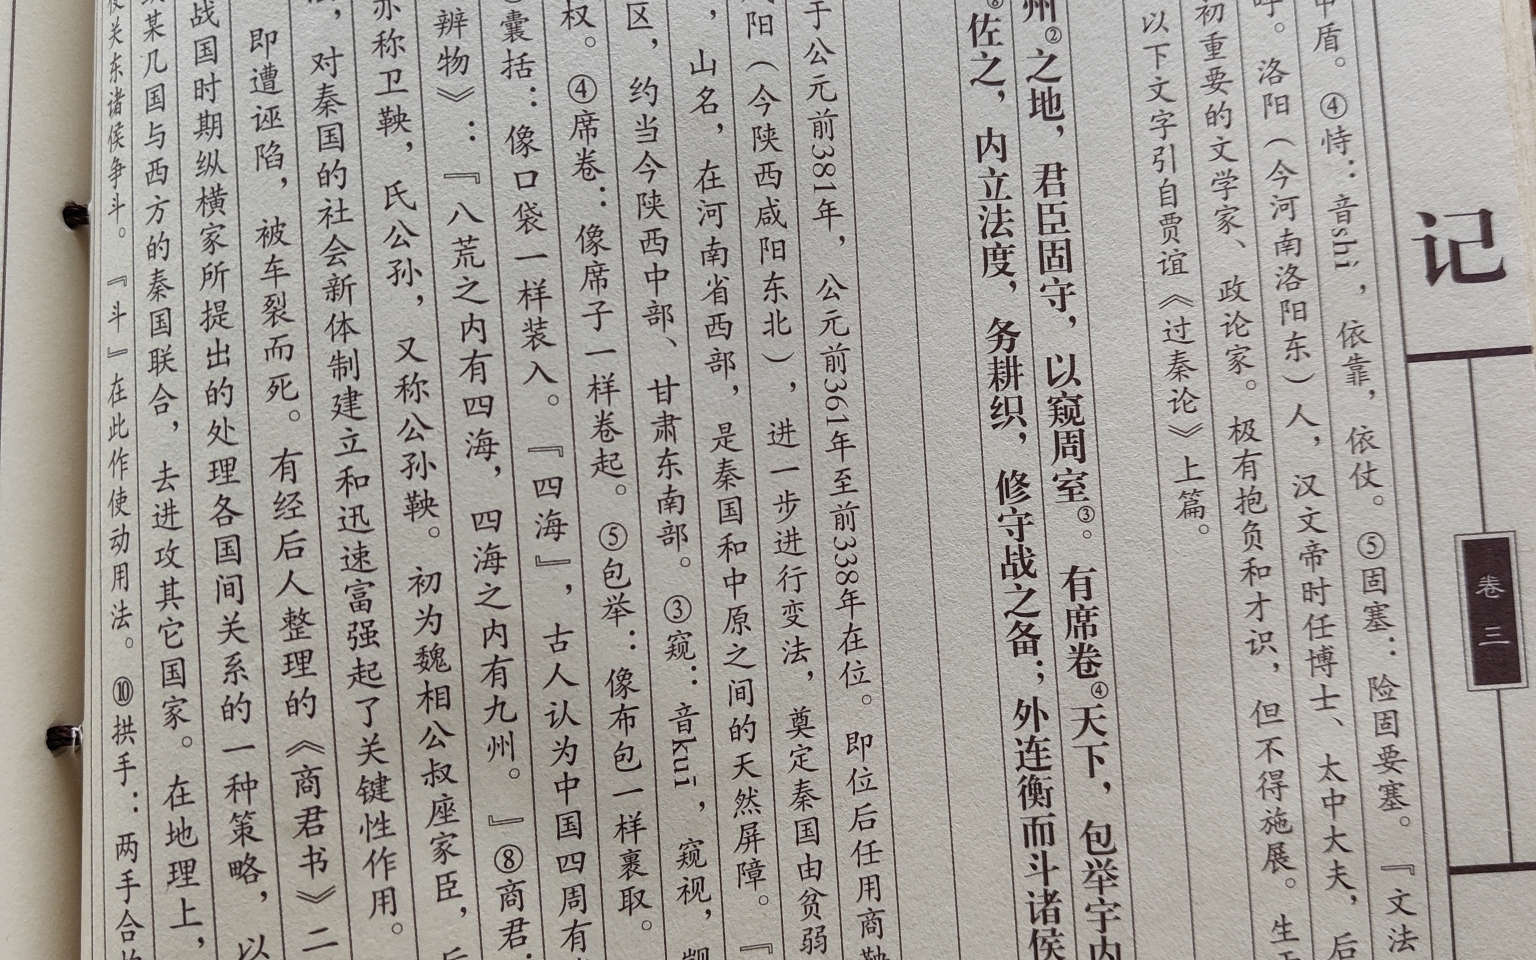 记
卷三
甲盾。④恃：音shì，依靠，依仗。⑤固塞：险固要塞。『文法
呼。洛阳（今河南洛阳东）人，汉文帝时任博士、太中大夫，后
初重要的文学家、政论家。极有抱负和才识，但不得施展。生
以下文字引自贾谊《过秦论》上篇。
州②之地，君臣固守，以窥周室③。有席卷④天下，包举宇内
⑧佐之，内立法度，务耕织，修守战之备；外连衡而斗诸侯
于公元前381年，公元前361年至前338年在位。即位后任用商鞅
阳（今陕西咸阳东北），进一步进行变法，奠定秦国由贫弱
，山名，在河南省西部，是秦国和中原之间的天然屏障。『
区，约当今陕西中部、甘肃东南部。③窥：音kuī，窥视，
权。④席卷：像席子一样卷起。⑤包举：像布包一样裹取。
囊括：像口袋一样装入。『四海』，古人认为中国四周有
辨物》：『八荒之内有四海，四海之内有九州。』⑧商君：
亦称卫鞅，氏公孙，又称公孙鞅。初为魏相公叔座家臣，
，对秦国的社会新体制建立和迅速富强起了关键性作用。
即遭诬陷，被车裂而死。有经后人整理的《商君书》二
战国时期纵横家所提出的处理各国间关系的一种策略，以
某几国与西方的秦国联合，去进攻其它国家。在地理上，
使关东诸侯争斗。『斗』在此作使动用法。⑩拱手：两手合